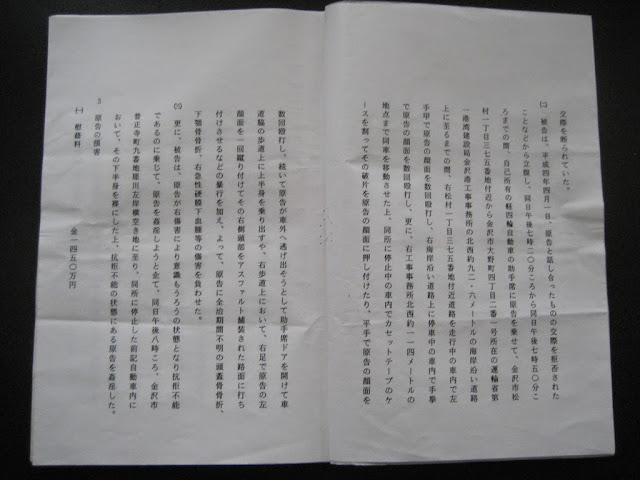 交際を断られていた。
㈡　被告は、平成四年四月一日、原告と話し合ったものの交際を拒否された
ことなどから立腹し、同日午後七時二〇分ころから同日午後七時五〇分こ
ろまでの間、自己所有の軽四輪自動車の助手席に原告を乗せて、金沢市松
村一丁目三七五番地付近から金沢市大野町四丁目二番一号所在の運輸省第
一港湾建設局金沢港工事事務所の北西約九二・六メートルの海岸沿い道路
上に至るまでの間、右松村一丁目三七五番地付近道路を走行中の車内で左
手甲で原告の顔面を数回殴打し、右海岸沿い道路上に停車中の車内で手拳
で原告の顔面を数回殴打し、更に、右工事事務所北西約一一四メートルの
地点まで同車を移動させた上、同所に停止中の車内でカセットテープのケ
ースを割ってその破片を原告の顔面に押し付けたり、平手で原告の顔面を
数回殴打し、続いて原告が車外へ逃げ出そうとして助手席ドアを開けて車
道脇の歩道上に上半身を乗り出すや、右歩道上において、右足で原告の左
顔面を一回蹴り付けてその右側頭部をアスファルト舗装された路面に打ち
付けさせるなどの暴行を加え、よって、原告に全治期間不明の頭蓋骨骨折、
下顎骨骨折、右急性硬膜下血腫等の傷害を負わせた。
㈢　更に、被告は、原告が右傷害により意識もうろうの状態となり抗拒不能
であるのに乗じて、原告を姦淫しようと企て、同日午後八時ころ、金沢市
普正寺町九番地犀川左岸横空き地に至り、同所に停止した前記自動車内に
おいて、その下半身を裸にした上、抗拒不能の状態にある原告を姦淫した。
3　原告の損害
㈠　慰藉料　　　　　金一四五〇万円